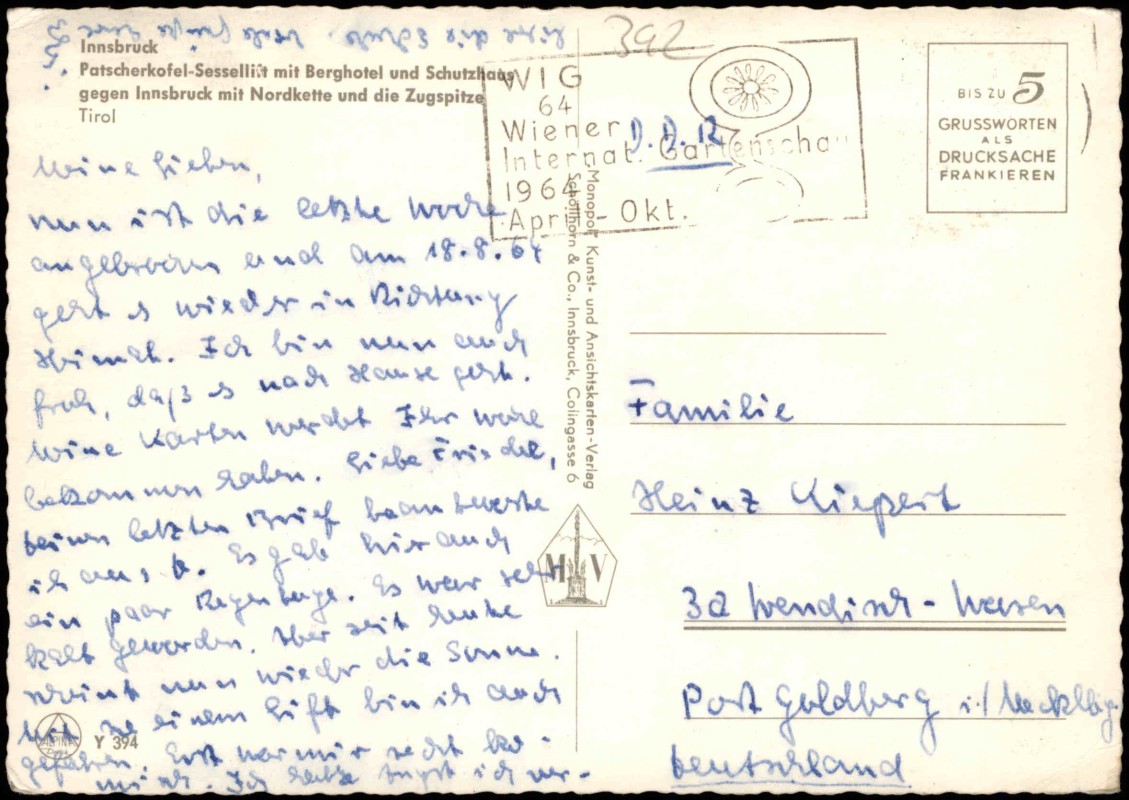 392
Innsbruck
Patscherkofel-Sessellift mit Berghotel und Schutzhaus
gegen Innsbruck mit Nordkette und die Zugspitze
Tirol
WIG
64
Wiener
Internat. Gartenschau
1964
April - Okt.
D. D. R.
BIS ZU 5
GRUSSWORTEN
ALS
DRUCKSACHE
FRANKIEREN
Meine Lieben,
nun ist die letzte Woche
angebrochen und am 18.8.64
geht es wieder in Richtung
Heimat. Ich bin nun auch
froh, daß es nach Hause geht.
Meine Karten werdet Ihr wohl
bekommen haben. Liebe Friedel,
Deinen letzten Brief beantworte
ich aus
Es gab hier auch
ein paar Regentage. Es war sehr
kalt geworden. Aber seit heute
scheint nun wieder die Sonne.
Mit so einem Lift bin ich auch
gefahren. Erst war mir recht ko-
misch. Ich hatte Angst ich ver-
Monopol: Kunst- und Ansichtskarten-Verlag
Schöllhorn & Co., Innsbruck, Colingasse 6
M V
Familie
Heinz Kiepert
3a Wendisch-Waren
Post Goldberg i./Mecklbg.
Deutschland
ALPINA
Y 394